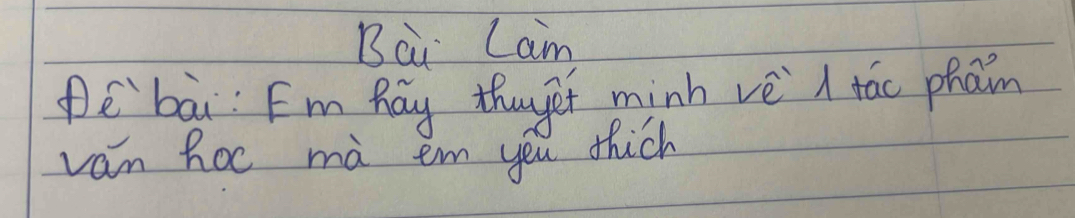 Bài Làm
Đề bài: Em hãy thuyết minh về 1 tác phẩm
văn học mà em yêu thích